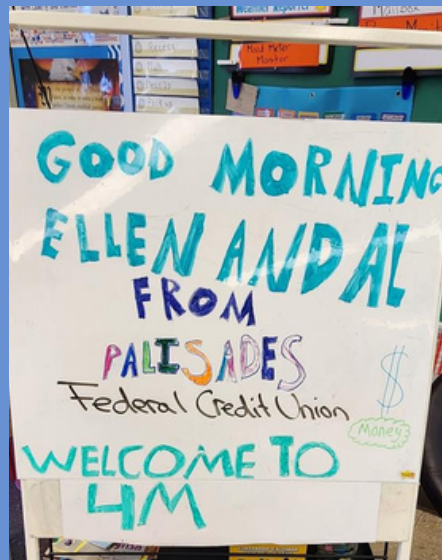 Mood Meter
Monitor
Recess
GOOD MORNING
ELLEN AND AL
FROM
PALISADES
Federal Credit Union
$
Money
WELCOME TO
4M